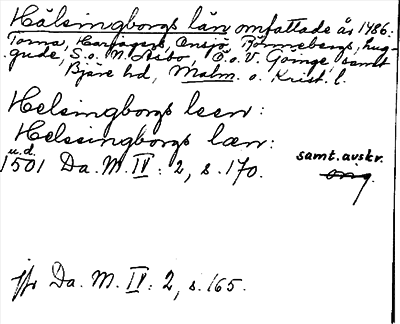 Hälsingborgs län omfattade år 1486:
Torna, Harjagers, Onsjö, Rönnebergs, Lug-
gude, S. o. N. Åsbo, Ö. o. V. Göinge, samt
Bjäre hd, Malm. o. Krist. l.
Helsingborgs leen:
Helsingborgs læn:
u.d.
1501 Da. M. IV: 2, s. 170. samt. avskr.
orig.
jfr Da. M. IV: 2, s. 165.